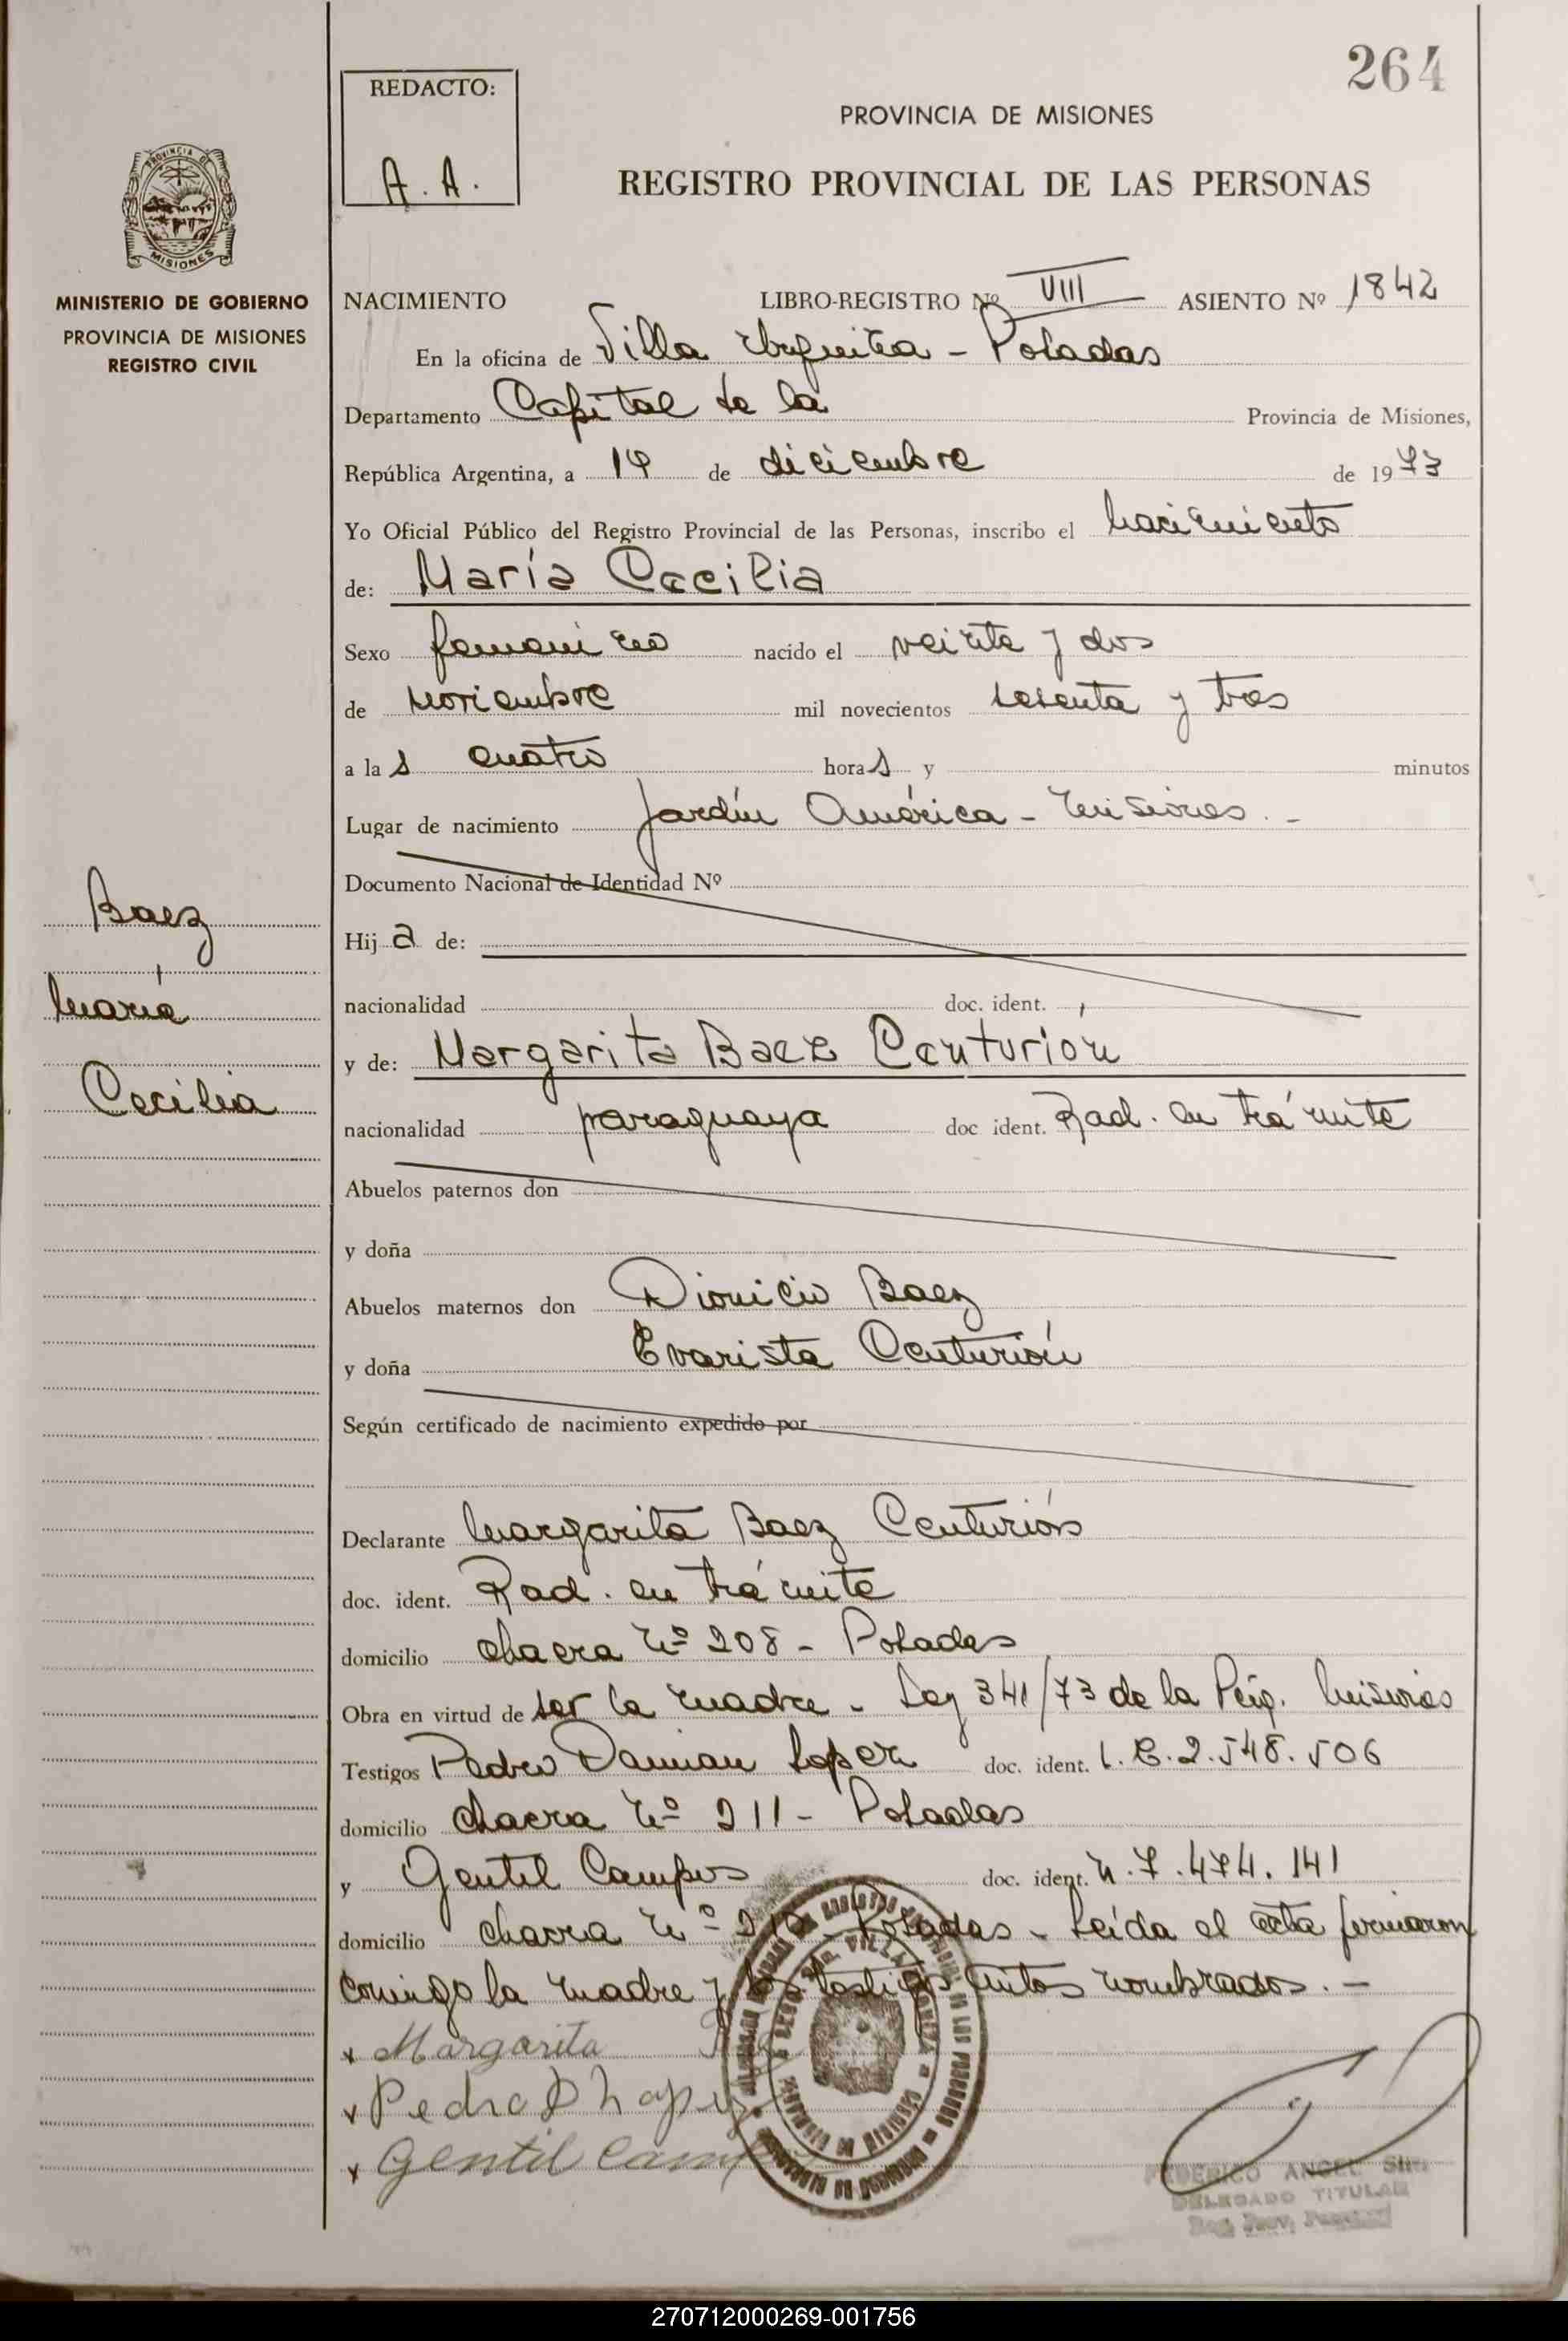 264
REDACTO:
A. A.
PROVINCIA DE MISIONES
REGISTRO PROVINCIAL DE LAS PERSONAS
PROVINCIA DE
MISIONES
MINISTERIO DE GOBIERNO
PROVINCIA DE MISIONES
REGISTRO CIVIL
NACIMIENTO LIBRO-REGISTRO Nº VIII ASIENTO Nº 1842
En la oficina de Villa Urquiza - Posadas
Departamento Capital de la Provincia de Misiones,
República Argentina, a 14 de diciembre de 1973
Yo Oficial Público del Registro Provincial de las Personas, inscribo el nacimiento
de: María Cecilia
Sexo femenino nacido el veinte y dos
de noviembre mil novecientos sesenta y tres
a las cuatro horas y minutos
Lugar de nacimiento Jardín América - Misiones. -
Documento Nacional de Identidad Nº
Hija de:
nacionalidad doc. ident.
y de: Margarita Baez Centurión
nacionalidad paraguaya doc ident. Rad. en trámite
Abuelos paternos don
y doña
Abuelos maternos don Dionicio Baez
y doña Evarista Centurión
Según certificado de nacimiento expedido por
Declarante Margarita Baez Centurión
doc. ident. Rad. en trámite
domicilio chacra Nº 208 - Posadas
Obra en virtud de ser la madre - Ley 341/73 de la Misiones
Testigos Pedro Damian Lopez doc. ident. L.E. 2.548.506
domicilio chacra Nº 211 - Posadas
y Gentil Campos doc. ident. N. 7.474.141
domicilio chacra Nº Posadas - Leída el acta firmaron
conmigo la madre y los testigos nombrados. -
x Margarita
x Pedro D Lopez
x Gentil Campos
FEDERICO ANGEL
DELEGADO TITULAR
Baez
María
Cecilia
270712000269-001756